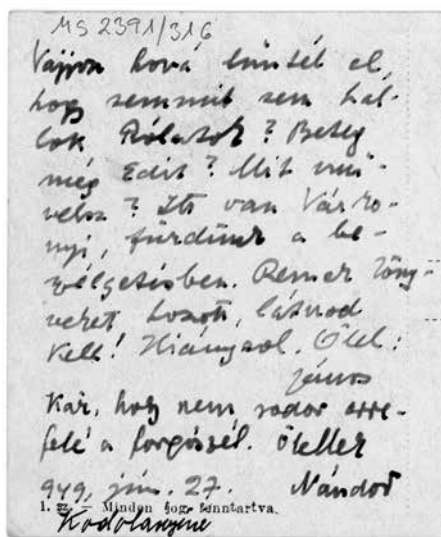 MS 2391/316
Vajjon hová tüntél el,
hogy semmit sem hal-
lok Rólatok? Beteg
még Edit? Mit mü-
velsz? Itt van Várko-
nyi, fürdünk a be-
szélgetésben. Remek köny-
veket hozott, látnod
kell! Hiányzol. Ölel:
János
Kár, hogy nem sodor erre-
felé a forgószél. Ölellek
949, jún. 27. Nándor
1. sz. — Minden jog fenntartva.